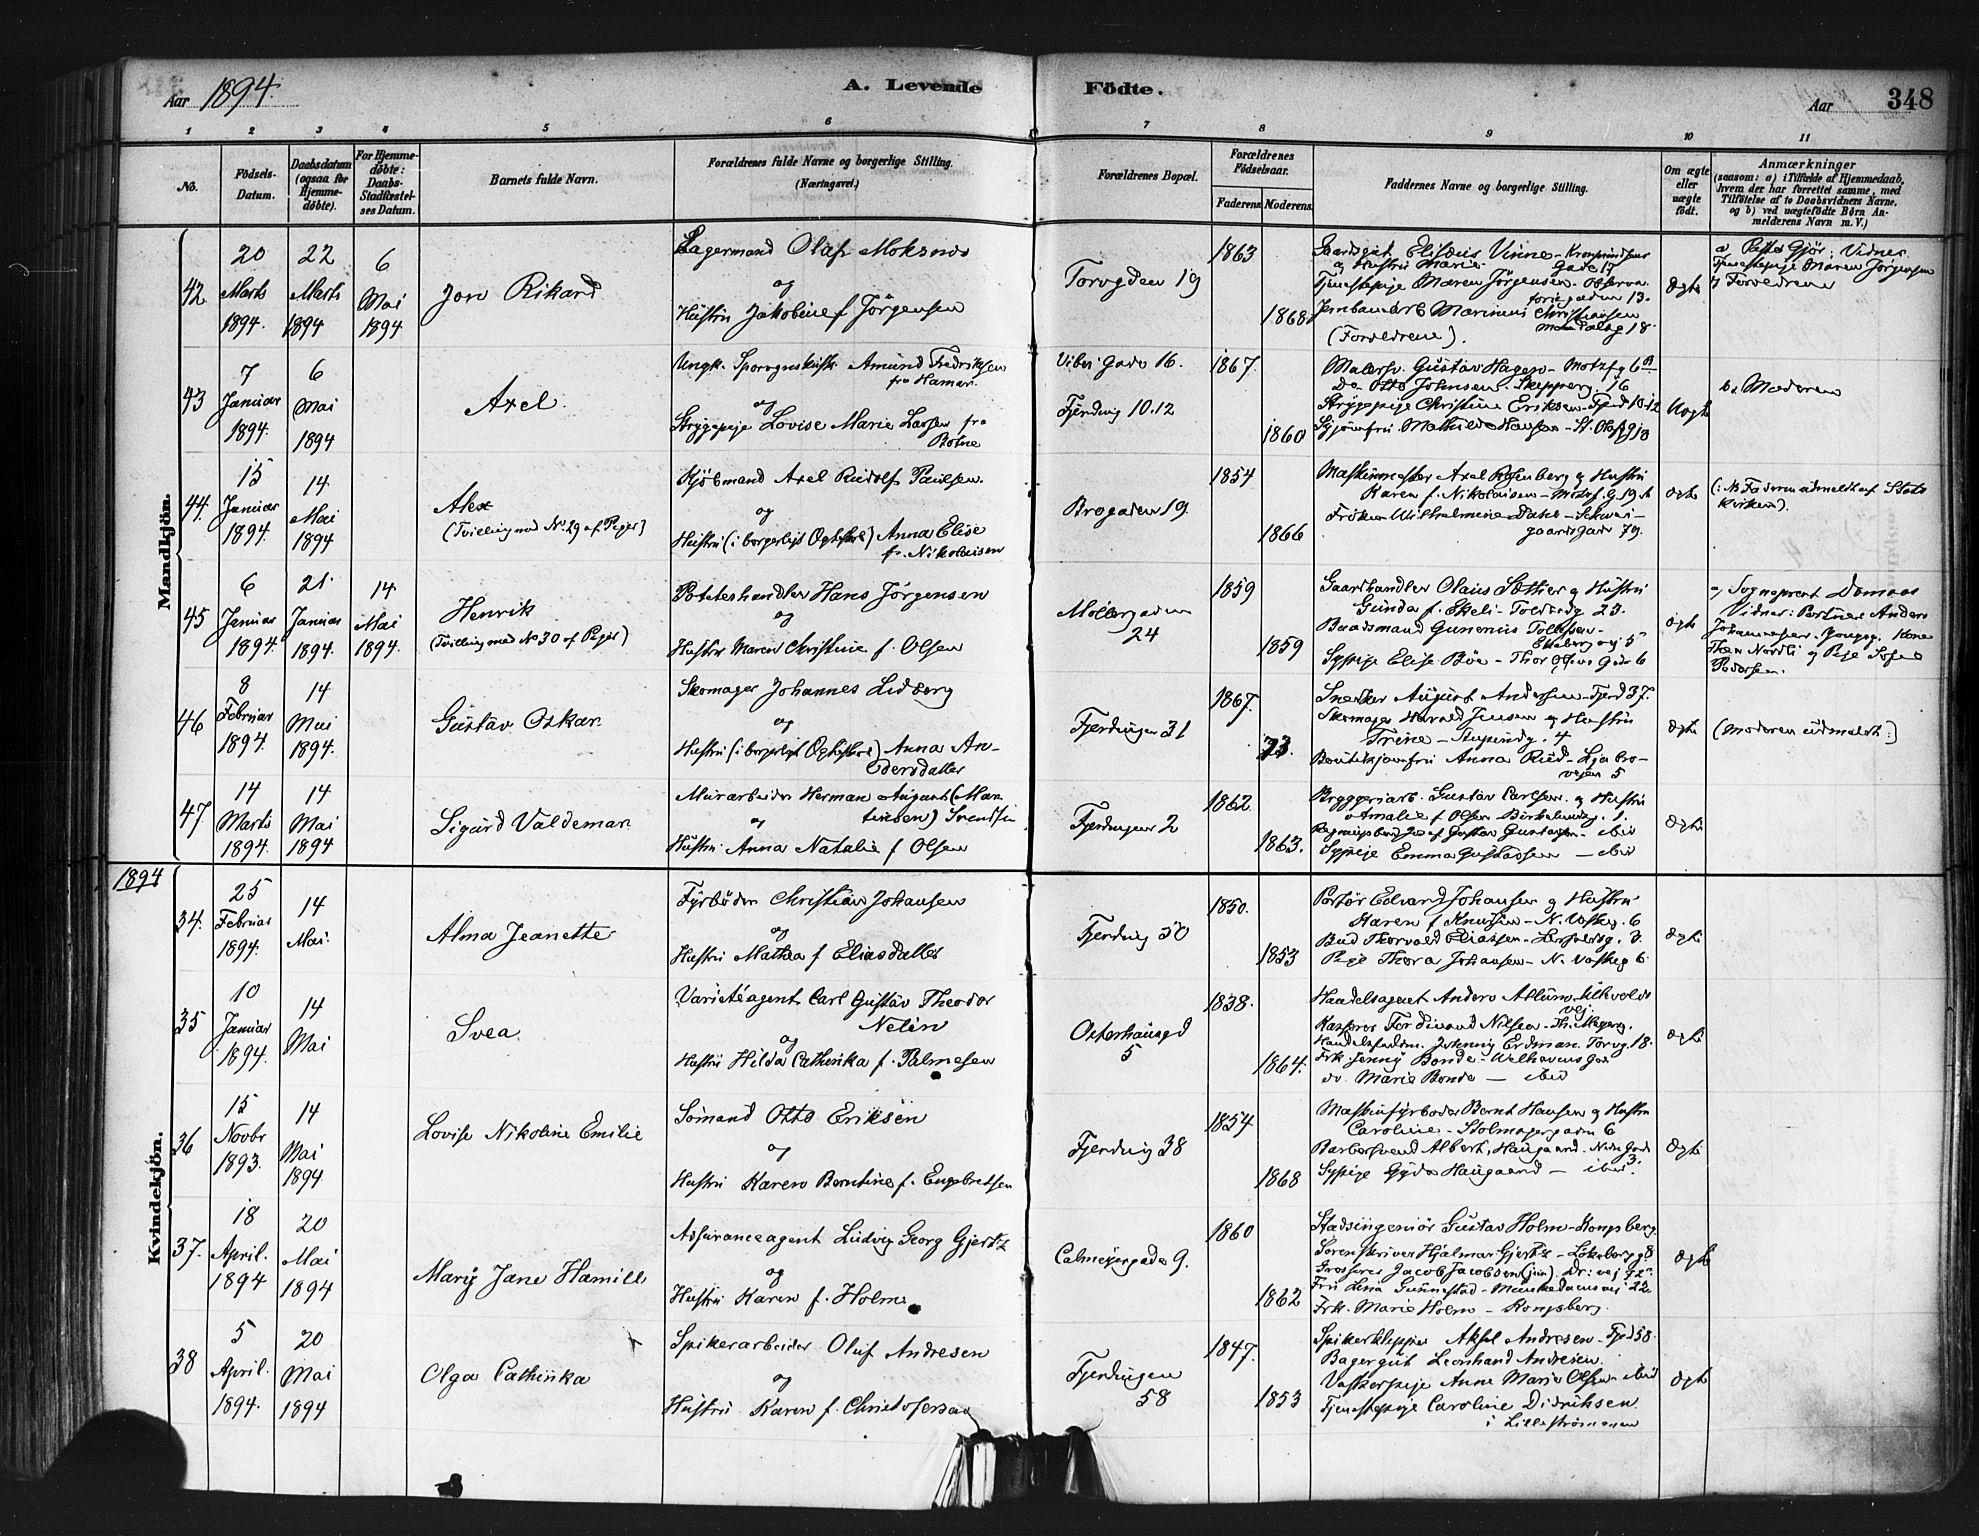 Aar 1894.
A. Levende Födte.
Aar
348
1 2 3 4 5 6 7 8 9 10 11
No.
Födsels-Datum.
Daabsdatum (ogsaa for Hjemme-döbte).
For Hjemme-döbte: Daabs-Stadfæstel-ses Datum.
Barnets fulde Navn.
Forældrenes fulde Navne og borgerlige Stilling. (Næringsvei.)
Forældrenes Bopæl.
Forældrenes Födselsaar.
Faderens. Moderens.
Faddernes Navne og borgerlige Stilling.
Om ægte eller uægte födt.
Anmærkninger
(saasom: a) i Tilfælde af Hjemmedaab, hvem der har forrettet samme, med Tilföielse af to Daabsvidners Navne. og b) ved uægtefödte Börn An-melderens Navn m. V.)
Mandkjön.
42
20 Marts 1894.
22 Marts 1894
6 Mai 1894
Jon Rikard
Lagermand Olaf Moksnes
og
Hustru Jakobine f Jörgensen
Torvgaden 19
1863
1868
Elisæus Vinne
og Hustru Marie Gade 17
Tjenestepige Maren Jörgensen
13.
Jernbanearb Marinius Christiansen
18.
(Forældrene).
Ægte
Vidner
Tjenestepige Maren Jörgensen
Forældrene
43
7 Januar 1894.
6 Mai 1894
Axel.
Ungk. Amund Fredriksen
fra Hamar.
og
Strygepige Lovise Marie Larsen fra
Botne
Vibes Gade 16.
Fjerding 10.12
1867.
1860
Malersv. Gustav Hagen - Motzfg 6B
Do Otto Johnsen. Skipperg. 16
Strygepige Christine Eriksen - Fjerd 10.12
Mathilde Hansen - St. Olafsg 18
Uægte
b, Moderen
44.
15 Januar 1894.
14 Mai 1894
Alex
(Tvilling med No 29 af Piger)
Kjöbmand Axel Rudolf Paulsen.
og
Hustru (i borgerligt Ægteskab) Anna Elise
f. Nikolaisen
Brogaden 19.
1854
1866
Maskinmester Axel Rosenberg og Hustru
Karen f. Nikolaisen - Motzf. G. 19
Fröken Wilhelmine Dahl - Schwei-
gaardsgade 79.
Ægte
(: NB Faderen udmeldt af Stats
kirken).
45
6 Januar 1894.
21. Januar 1894.
14 Mai 1894.
Henrik
(Tvilling med No 30 af Piger)
Poteteshandler Hans Jörgensen
og
Hustru Maren Christine f. Olsen
Möllergaden
24
1859
1859
Gaardhandler Olaus Sæther og Hustru
Gunda f. Ekeli - Toldbodg 23.
Baadsmand Gunerius Tollefsen -
Ekebergvej 5
Sypige Elise Böe - Thor Olsens Gade 6
Ægte
a, Sogneprest Domaas
Vidner: Portner Anders
Johannesen. Youngsg. Kone
Thea Nordli og Pige Sofie
Pedersen.
46
8 Februar 1894.
14 Mai 1894.
Gustav Oskar
Skomager Johannes Lidberg
og
Hustru (i borgerligt Ægteskab) Anna An-
dersdatter
Fjerdingen 31
1867.
73.
Snedker August Andersen - Fjerd 37.
Skomager Harald Jensen og Hustru
Trine - Stupendg. 4
Butikjomfru Anna Rud - Ljabro-
vejen 5
Ægte
(Moderen udmeldt:)
47
14 Marts 1894.
14 Mai 1894
Sigurd Valdemar
Murarbeider Herman August (Mar
tinsen) Svendsen
og
Hustru Anna Natalie f Olsen
Fjerdingen 2
1862
1863.
Bryggeriarb. Gustav Carlsen. og Hustru
Amalie f Olsen Birkelundg. 1.
Gustav Gustavsen - ibid
Sypige Emma Gustavsen - ibid
Ægte
1894
Kvindekjön.
34.
25 Februar 1894.
14 Mai.
Alma Jeanette
Fyrböder Christian Johansen
og
Hustru Mathea f Eliasdatter
Fjerding 30
1850.
1853
Portör Edvard Johansen og Hustru
Karen f Knutsen - N. Vaskeg. 6
Bud Thorvald Eliassen - 3.
Pige Thora Johansen - N. Vaskeg 6.
Ægte
35
10 Januar 1894.
14 Mai
Svea.
Varietéagent Carl Gustav Theodor
Nelin
og
Hustru Hilda Cathinka f. Palmesen
Osterhausgd
5
1838.
1864.
Handelsagent Anders Allum.
vej.
Kasserer Ferdinand Nilsen - Th. Meyersg.
Johnny Erdman. Torvg. 18.
Frk. Jenny Bonde - Welhavens Gade
do. Marie Bonde - ibid
Ægte
36
15 Novbr 1893.
14 Mai 1894
Lovise Nikoline Emilie
Sömand Otto Eriksen
og
Hustru Karen Berntine f. Engebretsen
Fjerding 38
1854
1868
Maskinfyrböder Bernt Hansen og Hustru
Caroline - Stolmagergaden 6
Barbersvend Albert Haugaard - Nedre Gade
3.
Sypige Gyda Haugaard - ibid
Ægte
37.
18 April. 1894
20 Mai 1894
Mary Jane Hamill
Assuranceagent Ludvig Georg Gjertz
og
Hustru Karen f. Holm
Calmeyergade 9.
1860
1862
Stadsingeniör Gustav Holm - Kongsberg.
Sorenskriver Hjalmar Gjertz - Lökkebergg 8
Grosserer Jacob Jacobsen (jun). Dr: vej 72.
Fru Lina Gunnestad - Munkedamsvej 22
Frk. Marie Holm - Kongsberg.
Ægte
38
5 April. 1894.
20 Mai 1894
Olga Cathinka
Spikerarbeider Oluf Andresen
og
Hustru Karen f. Christofersen
Fjerdingen
58
1847.
1853
Spikerklipper Aksel Andresen - Fjerd 58.
Bagergut Leonhard Andresen.
Vaskerpige Anne Marie Olsen - ibid
Tjenestepige Caroline Didriksen
i Lilleströmmen
Ægte